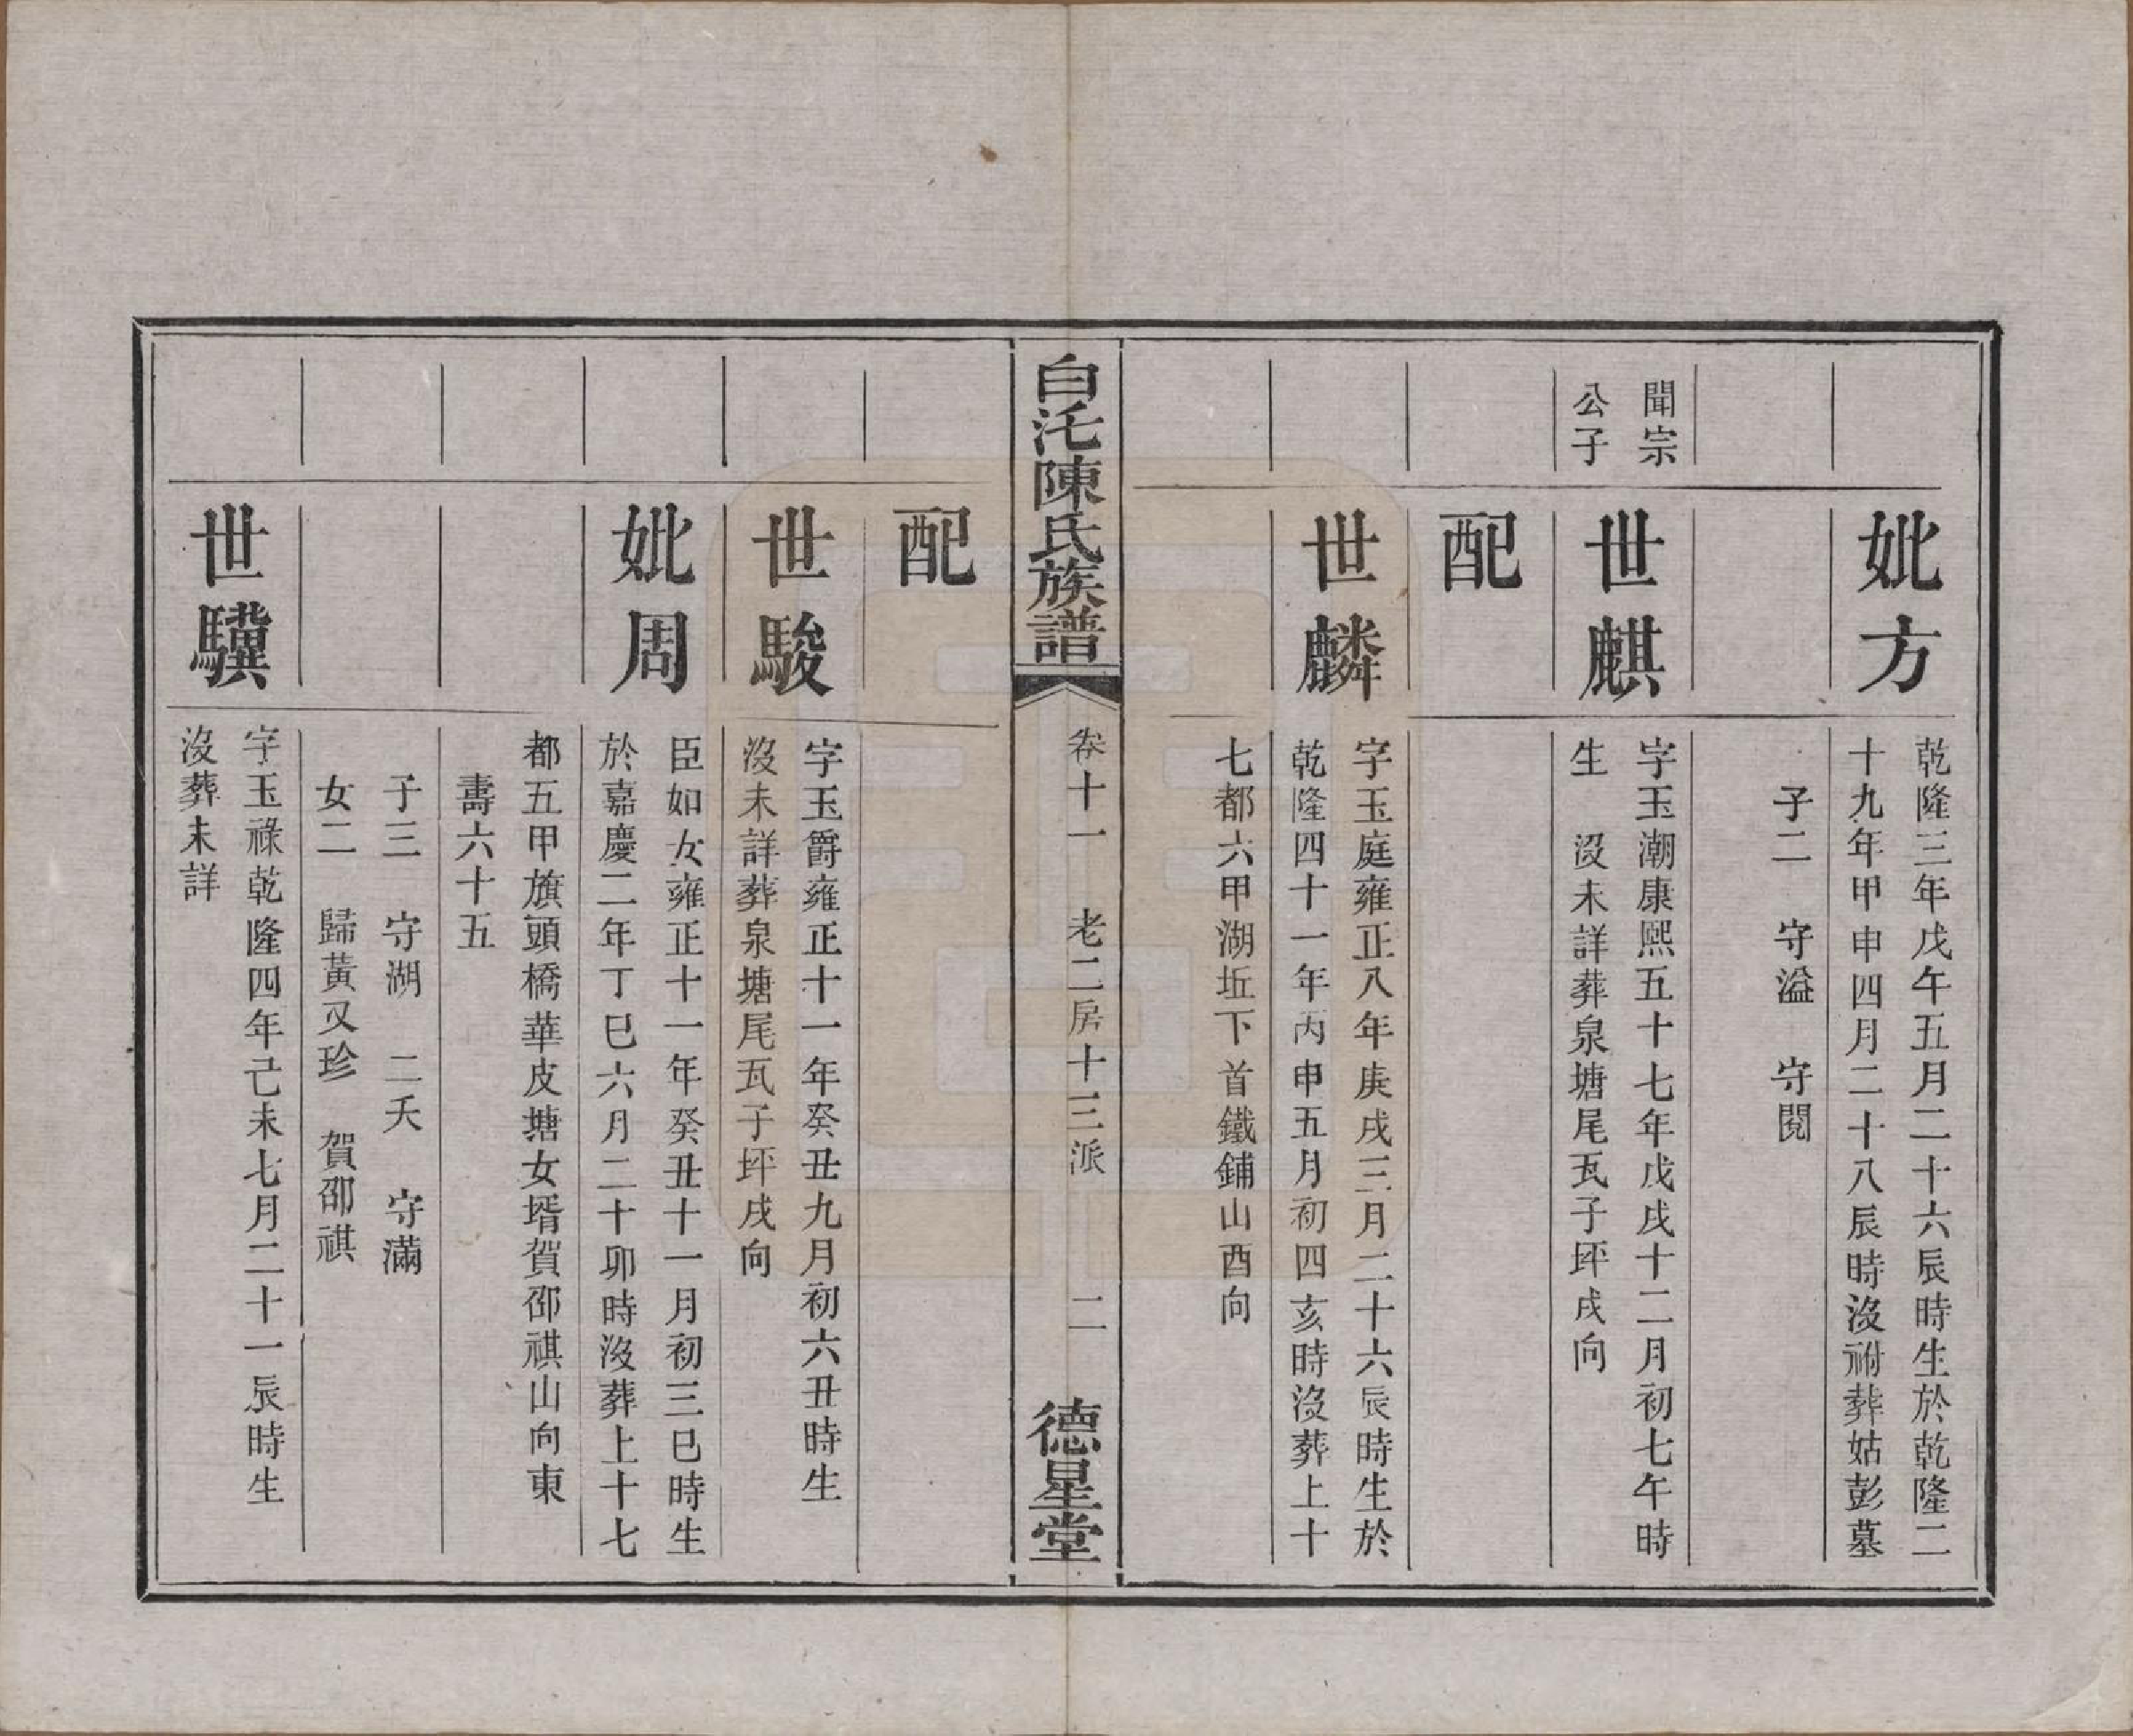 妣方
乾隆三年戊午五月二十六辰時生於乾隆二
十九年甲申四月二十八辰時沒祔葬姑彭墓
子二　守溢　守閱
聞宗
公子
世麒
字玉潮康熙五十七年戊戌十二月初七午時
生　沒未詳葬泉塘尾瓦子坪戌向
配
世麟
字玉庭雍正八年庚戌三月二十六辰時生於
乾隆四十一年丙申五月初四亥時沒葬上十
七都六甲湖坵下首鐵鋪山酉向
白沱陳氏族譜
卷十一　老二房十三派
二
德星堂
配
世駿
字玉爵雍正十一年癸丑九月初六丑時生
沒未詳葬泉塘尾瓦子坪戌向
妣周
臣如女雍正十一年癸丑十一月初三巳時生
於嘉慶二年丁巳六月二十卯時沒葬上十七
都五甲旗頭橋華皮塘女壻賀邵祺山向東
壽六十五
子三　守湖　二夭　守滿
女二　歸黃又珍　賀邵祺
世驥
字玉祿乾隆四年己未七月二十一辰時生
沒葬未詳